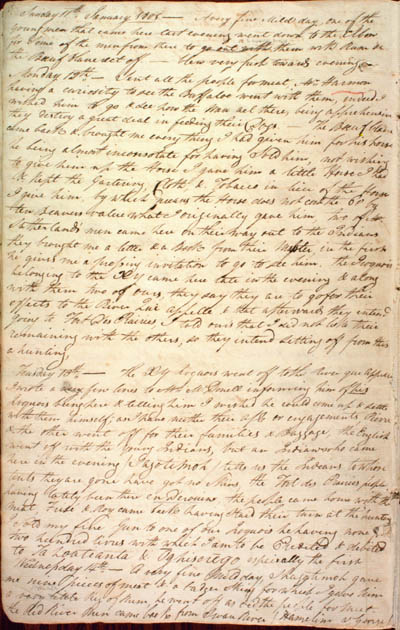 Sunday 11th January 1801 — A very fine Mild day, one of the
young men that came here last evening went down to the Elbow
for some of the men from there to go out with them with
the Bœuf Blanc set of — blew very fresh towards evening —
Monday 12th — Sent all the people for meat, Mr Harmon
having a curiosity to see the Buffaloe went with them, indeed I
wished him to go & see how the Men act there, being apprehensive
they destroy a great deal in feeding their Dogs. — the
came back & brought me everything I had given him for his horse
he being almost inconsolate for having Sold him, not wishing
to give him up the Horse I gave him a little Horse I had
& kept the Gartering, Cloth & Tobacco in lieu of the Horse
I give him, by which means the Horse does not cost the Co by
ten Beavers value what I originally gave him two of Mr
Sutherlands men came here on their way out to the Indians
they brought me a letter & a Book from their Master in the first
he gives me a pressing invitation to go to see him. the Iroquois
belonging to the XY came here late in the evening & along
with them two of ours, they say they are to go for their
effects to the River Qui Appelle & that afterwards they intend
going to Fort Des Prairies I told ours that I did not like their
remaining with the others, so they intend setting off from this
a hunting,
Tuesday 13th — the XY Iroquois went off to the River qui appelle
I wrote a very few lines to Mr informing him of his
Iroquois being here & telling him I wished he could come up & settle
with them himself; as I have neither their or engagements
& the other went off for their families & Baggage, the English
went off with the Young Indians, but an Indian who came
here in the evening tells us the Indians to whose
tents they are gone have got no Skins the Fort des Prairies people
having lately been there en derouine the people came home with the
meat & Roy came back having had their turn at the hunting
sold my fine Gun to one of our Iroquois he having none
two hundred livres with which I am to be Credited & debited
to & especially the first
Wednesday 14th — A very fine Mild day,
me nine pieces of meat & a large Skin for which I gave him
a very little keg of Rum, he went off as did the people for meat
the Red River Men came back from Swan River (Hamelin & George)